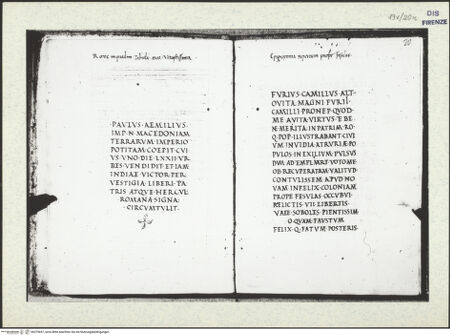 19v/20r
DIS
FIRENZE
20
PAVLVS · AEMILIVS ·
IMP · N · MACEDONIAM
TERRARVM · IMPERIO
POTITAM · COEPIT · CVI
VS · VNO · DIE · LXXII · VR
BES · VENDIDIT · ET · IAM ·
INDIAE · VICTOR · PER
VESTIGIA · LIBERI · PA
TRIS · ATQVE · HERCVL
ROMANA · SIGNA ·
CIRCVMTVLIT ·
FVRIVS · CAMILLVS · ALT
OVITA · MAGNI · FVRII ·
CAMILLI · PRONEP · QVOD ·
ME · AVITA · VIRTVS · E · BE
NE · MERITA · IN · PATRIM · RO
Q · POP · ILLVSTRABANT · CIVI
VM · INVIDIA · ATRVRIAE · PO
PVLOS · IN · EXILIVM · PVLSVS
DVM · AD · EMPLMRT · VOTOME
OB · RECVPERATAM · VALITVD
CONTVLISSEM · APVD · NO
VAM · INFELIX · COLONIAM
PROPE · FESVLAS · OCCVBVI
RELICTIS · VII · LIBERTIS ·
VALE · SOBOLES · PIENTISSIM
O · QVAM · FAVSTVM
FELIX · Q · FATVM · POSTERIS ·